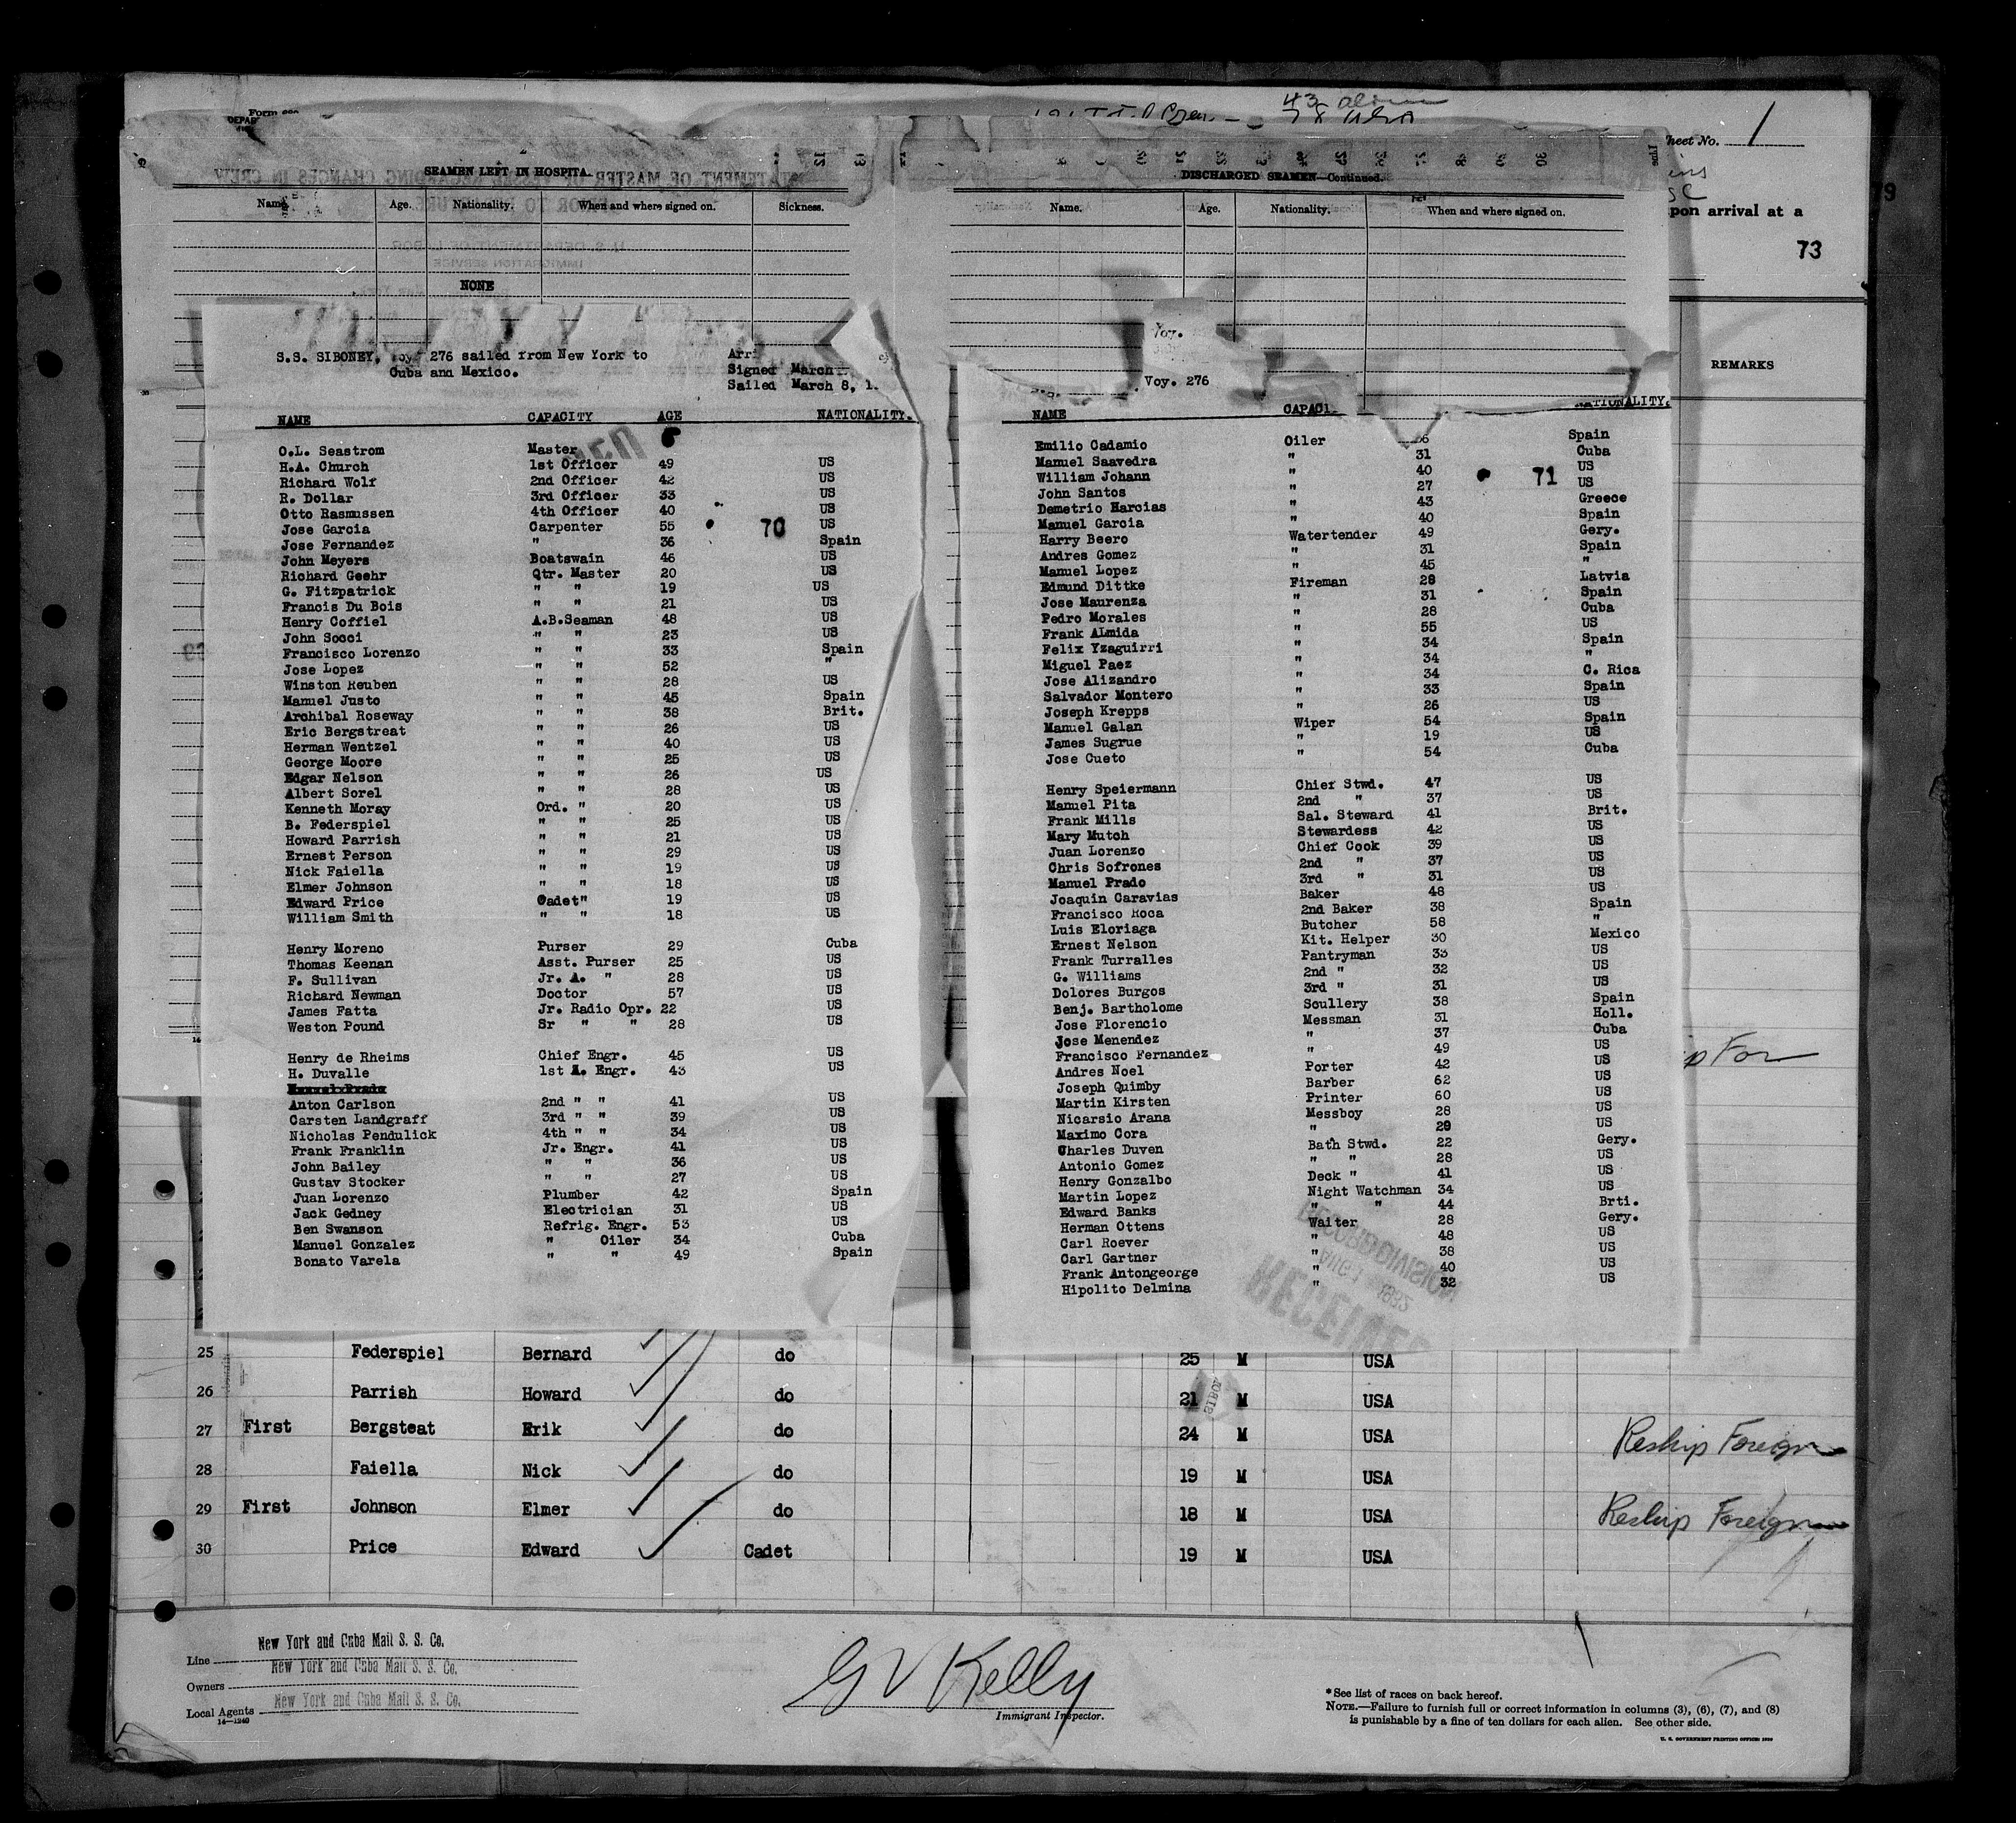 Sheet No. 1
upon arrival at a
73
REMARKS
SEAMEN LEFT IN HOSPITA
Name. Age. Nationality. When and where signed on. Sickness.
NONE
DISCHARGED SEAMEN—Continued.
Name. Age. Nationality. When and where signed on.
S.S. SIBONEY, Voy. 276 sailed from New York to
Cuba and Mexico.
Arri
Signed March
Sailed March 8, 1
NAME CAPACITY AGE NATIONALITY.
O.L. Seastrom Master
H.A. Church 1st Officer 49 US
Richard Wolf 2nd Officer 42 US
R. Dollar 3rd Officer 33 US
Otto Rasmussen 4th Officer 40 US
Jose Garcia Carpenter 55 70 US
Jose Fernandez " 36 Spain
John Meyers Boatswain 46 US
Richard Geehr Qtr. Master 20 US
G. Fitzpatrick " " 19 US
Francis Du Bois " " 21 US
Henry Coffiel A.B.Seaman 48 US
John Socci " " 23 US
Francisco Lorenzo " " 33 Spain
Jose Lopez " " 52 "
Winston Reuben " " 28 US
Manuel Justo " " 45 Spain
Archibal Roseway " " 38 Brit.
Eric Bergstreat " " 26 US
Herman Wentzel " " 40 US
George Moore " " 25 US
Edgar Nelson " " 26 US
Albert Sorel " " 28 US
Kenneth Moray Ord. " 20 US
B. Federspiel " " 25 US
Howard Parrish " " 21 US
Ernest Person " " 29 US
Nick Faiella " " 19 US
Elmer Johnson " " 18 US
Edward Price Cadet" 19 US
William Smith " " 18 US
Henry Moreno Purser 29 Cuba
Thomas Keenan Asst. Purser 25 US
F. Sullivan Jr. A. " 28 US
Richard Newman Doctor 57 US
James Fatta Jr. Radio Opr. 22 US
Weston Pound Sr " " 28 US
Henry de Rheims Chief Engr. 45 US
H. Duvalle 1st A. Engr. 43 US
Anton Carlson 2nd " " 41 US
Carsten Landgraff 3rd " " 39 US
Nicholas Pendulick 4th " " 34 US
Frank Franklin Jr. Engr. 41 US
John Bailey " " 36 US
Gustav Stocker " " 27 US
Juan Lorenzo Plumber 42 Spain
Jack Gedney Electrician 31 US
Ben Swanson Refrig. Engr. 53 US
Manuel Gonzalez " Oiler 34 Cuba
Bonato Varela " " 49 Spain
Voy. 276
NAME CAPACI NATIONALITY.
Emilio Cadamio Oiler 6 Spain
Manuel Saavedra " 31 Cuba
William Johann " 40 71 US
John Santos " 27 US
Demetrio Harcias " 43 Greece
Manuel Garcia " 40 Spain
Harry Beero Watertender 49 Gery.
Andres Gomez " 31 Spain
Manuel Lopez " 45 "
Edmund Dittke Fireman 28 Latvia
Jose Maurenza " 31 Spain
Pedro Morales " 28 Cuba
Frank ALmida " 55 US
Felix Yzaguirri " 34 Spain
Miguel Paez " 34 "
Jose Alizandro " 34 C. Rica
Salvador Montero " 33 Spain
Joseph Krepps " 26 US
Manuel Galan Wiper 54 Spain
James Sugrue " 19 US
Jose Cueto " 54 Cuba
Henry Speiermann Chief Stwd. 47 US
Manuel Pita 2nd " 37 US
Frank Mills Sal. Steward 41 Brit.
Mary Mutch Stewardess 42 US
Juan Lorenzo Chief Cook 39 US
Chris Sofrones 2nd " 37 US
Manuel Prado 3rd " 31 US
Joaquin Caravias Baker 48 US
Francisco Roca 2nd Baker 38 Spain
Luis Eloriaga Butcher 58 "
Ernest Nelson Kit. Helper 30 Mexico
Frank Turralles Pantryman 33 US
G. Williams 2nd " 32 US
Dolores Burgos 3rd " 31 US
Benj. Bartholome Scullery 38 Spain
Jose Florencio Messman 31 Holl.
Jose Menendez " 37 Cuba
Francisco Fernandez " 49 US
Andres Noel Porter 42 US
Joseph Quimby Barber 62 US
Martin Kirsten Printer 60 US
Nicarsio Arana Messboy 28 US
Maximo Cora " 29 US
Charles Duven Bath Stwd. 22 Gery.
Antonio Gomez " " 28 US
Henry Gonzalbo Deck " 41 US
Martin Lopez Night Watchman 34 US
Edward Banks " " 44 Brti.
Herman Ottens Waiter 28 Gery.
Carl Roever " 48 US
Carl Gartner " 38 US
Frank Antongeorge " 40 US
Hipolito Delmina " 32 US
25 Federspiel Bernard do 25 M USA
26 Parrish Howard do 21 M USA
27 First Bergsteat Erik do 24 M USA Reship Foreign
28 Faiella Nick do 19 M USA
29 First Johnson Elmer do 18 M USA Reship Foreign
30 Price Edward Cadet 19 M USA
Line New York and Cuba Mail S. S. Co.
Owners New York and Cuba Mail S. S. Co.
Local Agents New York and Cuba Mail S. S. Co.
14—1240
G V Kelly
Immigrant Inspector.
*See list of races on back hereof.
NOTE.—Failure to furnish full or correct information in columns (3), (6), (7), and (8)
is punishable by a fine of ten dollars for each alien. See other side.